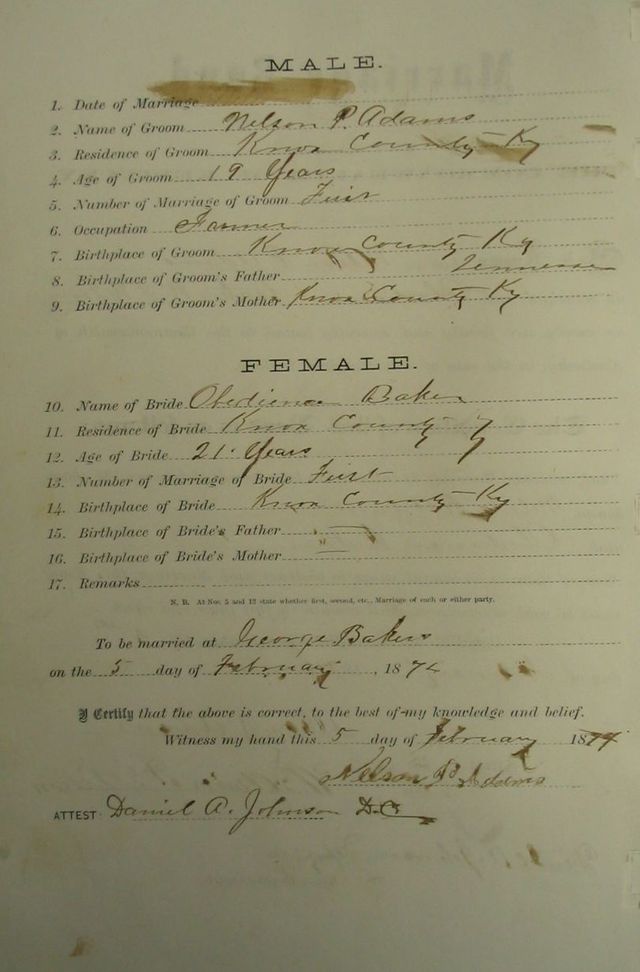 MALE.
1. Date of Marriage
2. Name of Groom Nelson P. Adams
3. Residence of Groom Knox County Ky
4. Age of Groom 19 Years
5. Number of Marriage of Groom First
6. Occupation Farmer
7. Birthplace of Groom Knox County Ky
8. Birthplace of Groom's Father Tennessee
9. Birthplace of Groom's Mother Knox County Ky
FEMALE.
10. Name of Bride Obedience Baker
11. Residence of Bride Knox County
12. Age of Bride 21 Years
13. Number of Marriage of Bride First
14. Birthplace of Bride Knox County Ky
15. Birthplace of Bride's Father
16. Birthplace of Bride's Mother
17. Remarks
N. B. At Nos. 5 and 13 state whether first, second, etc., Marriage of each or either party.
To be married at George Bakers
on the 5 day of February, 1874
I Certify that the above is correct, to the best of my knowledge and belief.
Witness my hand this 5 day of February 1874
Nelson P. Adams
ATTEST: Daniel A. Johnson D.C.